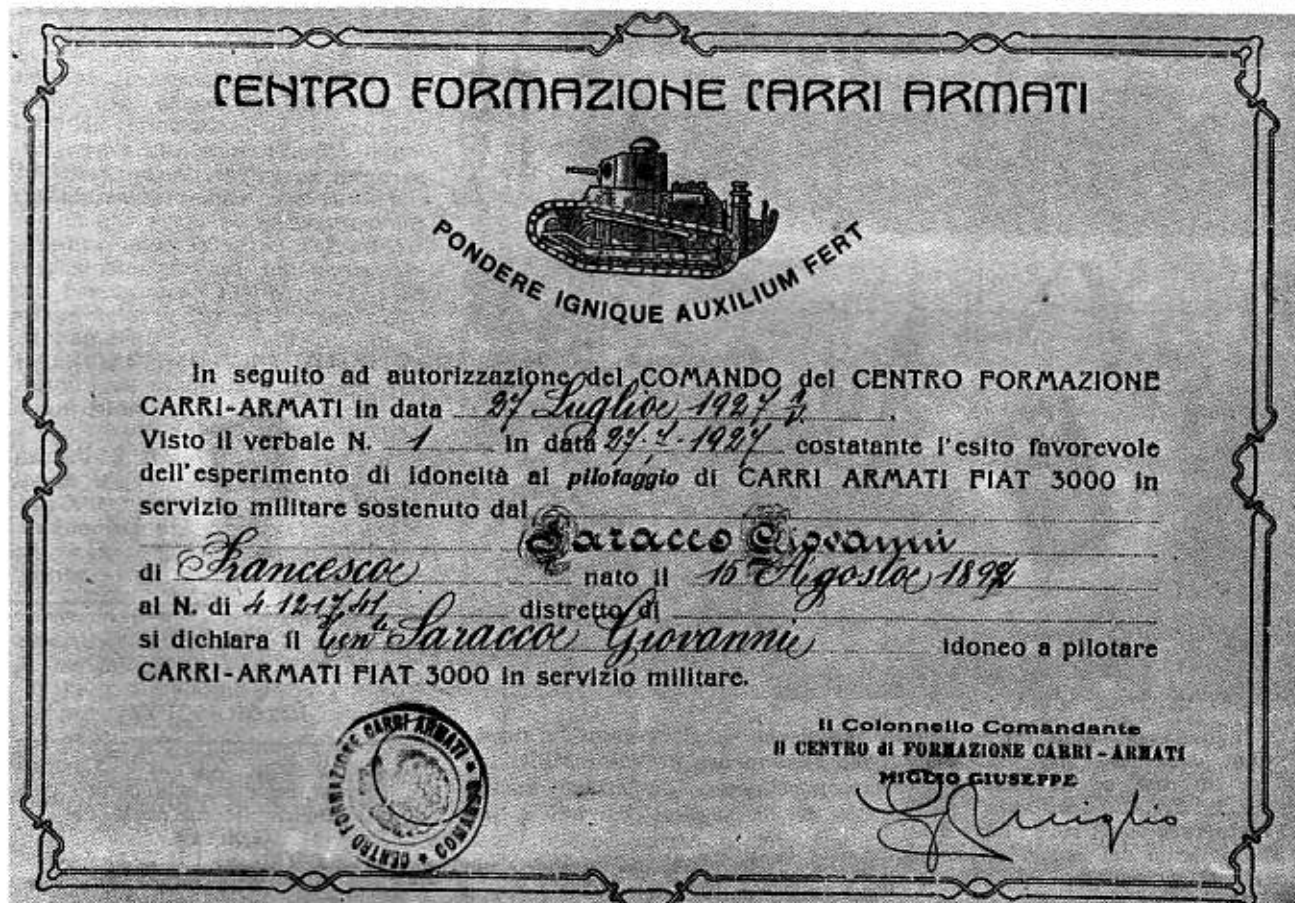 CENTRO FORMAZIONE CARRI ARMATI
PONDERE IGNIQUE AUXILIUM FERT
In seguito ad autorizzazione del COMANDO del CENTRO FORMAZIONE
CARRI-ARMATI in data 27 Luglio 1927
Visto il verbale N. 1 in data 27-7-1927 costatante l'esito favorevole
dell'esperimento di idoneità al pilotaggio di CARRI ARMATI FIAT 3000 in
servizio militare sostenuto dal
Saracco Giovanni
di Francesco nato il 15 Agosto 1897
al N. di distretto di
si dichiara il Ten Saracco Giovanni idoneo a pilotare
CARRI-ARMATI FIAT 3000 in servizio militare.
Il Colonnello Comandante
Il CENTRO di FORMAZIONE CARRI-ARMATI
MIGLIO GIUSEPPE
G Miglio
CENTRO FORMAZIONE CARRI ARMATI